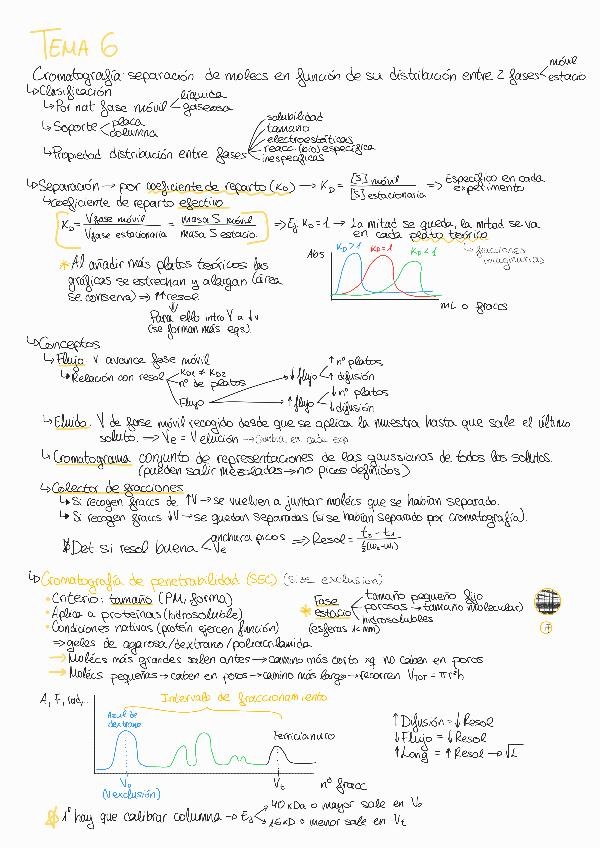 TEMA 6
Cromatografía: separación de molecs en función de su distribución entre 2 fases < móvil
estacio
↳ Clasificación
↳ Por nat fase móvil < líquida
gaseosa
↳ Soporte < placa
columna
↳ Propiedad distribución entre fases
solubilidad
tamaño
electroestáticas
reacc (bio) específica
inespecíficas
↳ Separación → por coeficiente de reparto (KD) → KD = [S] móvil / [S] estacionaria ⇒ Específico en cada
experimento
↳ Coeficiente de reparto efectivo
KD = V fase móvil / V fase estacionaria = masa S móvil / masa S estacio. ⇒ Ej KD = 1 → La mitad se queda, la mitad se va
en cada plato teórico
↳ fracciones
imaginarias
* Al añadir más platos teóricos las
gráficas se estrechan y alargan (área
se conserva) ⇒ ↑↑ resol
⇓
Para ello intro V a ↓v
(se forman más eqs).
Abs
KD > 1 KD = 1 KD < 1
mL o fraccs
↳ Conceptos
↳ Flujo: v avance fase móvil
↳ Relación con resol
KD1 ≠ KD2
nº de platos
Flujo
↓ flujo < ↑ nº platos
↑ difusión
↑ flujo < ↓ nº platos
↓ difusión
↳ Eluido: V de fase móvil recogido desde que se aplica la muestra hasta que sale el último
soluto. ⇒ Ve = V elución → Cambia en cada exp
↳ Cromatograma: conjunto de representaciones de las gaussianas de todos los solutos.
(pueden salir mezcladas → no picos definidos)
↳ Colector de fracciones
↳ Si recogen fraccs de ↑V → se vuelven a juntar molécs que se habían separado.
↳ Si recogen fraccs ↓V → se quedan separadas (si se habían separado por cromatografía).
Det si resol buena < anchura picos
Ve
⇒ Resol =
↳ Cromatografía de penetrabilidad (SEC) (size exclusion)
• Criterio: tamaño (PM, forma)
• Aplica a proteínas (hidrosoluble)
• Condiciones nativas (protein ejercen función)
⇒ geles de agarosa/dextrano/poliacrilamida
* Fase
estacio
(esferas 1 mm)
tamaño pequeño fijo
porosas → tamaño molecular)
hidrosolubles
→ Molécs más grandes salen antes → camino más corto xq no caben en poros
→ Molécs pequeñas → caben en poros → camino más largo → recorren VTOT = πr²h
A, F, rad,...
Intervalo de fraccionamiento
Azul de
dextrano
ferricianuro
V₀
(V exclusión)
Vt
nº fracc
↑ Difusión = ↓ Resol
↓ Flujo = ↓ Resol
↑ Long = ↑ Resol → √L
1º hay que calibrar columna → Ej < 40 kDa o mayor sale en V₀
16 kD o menor sale en Vt